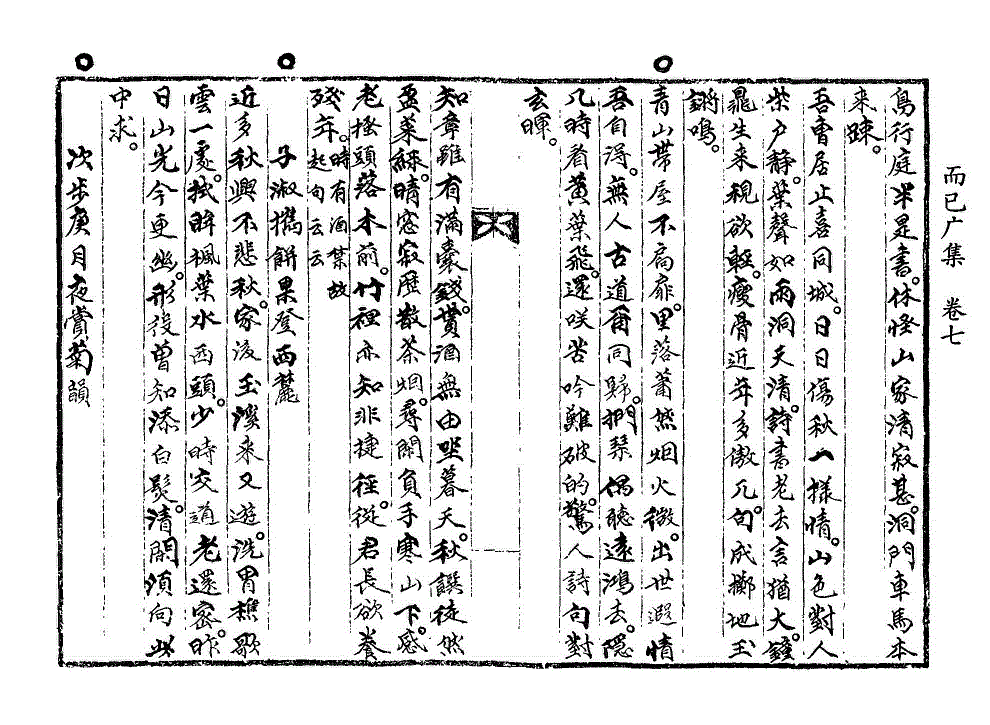 而已广集　卷七
鳥行庭半是書。休怪山家清寂甚。洞門車馬本
来踈。
吾會居止喜同城。日日傷秋一樣情。山色對人
柴户静。葉聲如雨洞天清。詩書老去言猶大。鐘
鼎生来視欲輕。瘦骨近年多傲兀。句成擲地玉
鏘鳴。
青山帯屋不扃扉。里落蕭然烟火微。出世遐情
吾自得。無人古道爾同歸。捫琴偶聽遠鴻去。隠
几時看黄葉飛。還咲苦吟難破的。驚人詩句對
玄暉。
知章雖有滿囊錢。貰酒無由坐暮天。秋饌徒然
盈菜綠。晴窓寂歷散茶烟。尋閒負手寒山下。感
老搔頭落木前。竹裡亦知非捷徑。従君長欲養
殘年。時有酒禁故
起句云云
子淑携餅果登西麓
近多秋興不悲秋。家後玉溪来又遊。洗胃樵歌
雲一處。拭眸楓葉水西頭。少時交道老還密。昨
日山光今更幽。形役曾知添白髮。清閒須向此
中求。
次步庚月夜賞菊韻